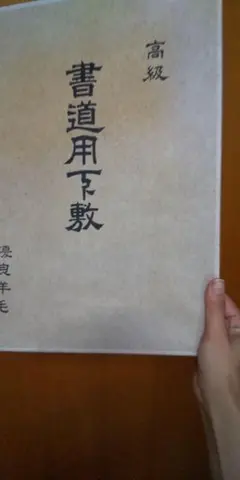 高級
書道用下敷
優良羊毛